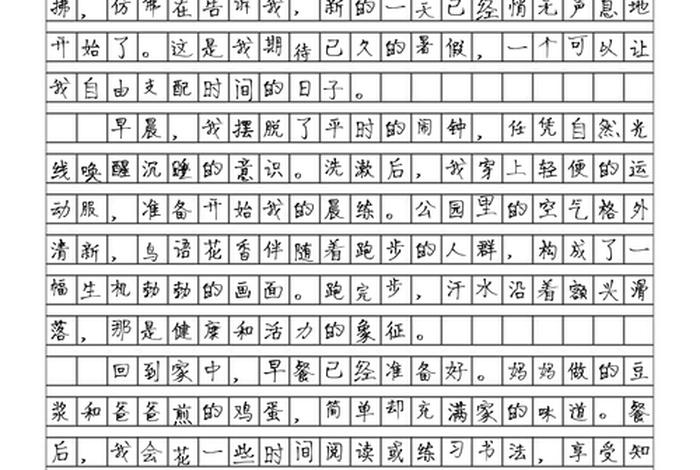 拂，仿佛在告诉我，新的一天已经悄无声息地
开始了。这是我期待已久的暑假，一个可以让
我自由支配时间的日子。
早晨，我摆脱了平时的闹钟，任凭自然光
线唤醒沉睡的意识。洗漱后，我穿上轻便的运
动服，准备开始我的晨练。公园里的空气格外
清新，鸟语花香伴随着跑步的人群，构成了一
幅生机勃勃的画面。跑完步，汗水沿着额头滑
落，那是健康和活力的象征。
回到家中，早餐已经准备好。妈妈做的豆
浆和爸爸煎的鸡蛋，简单却充满家的味道。餐
后，我会花一些时间阅读或练习书法，享受知